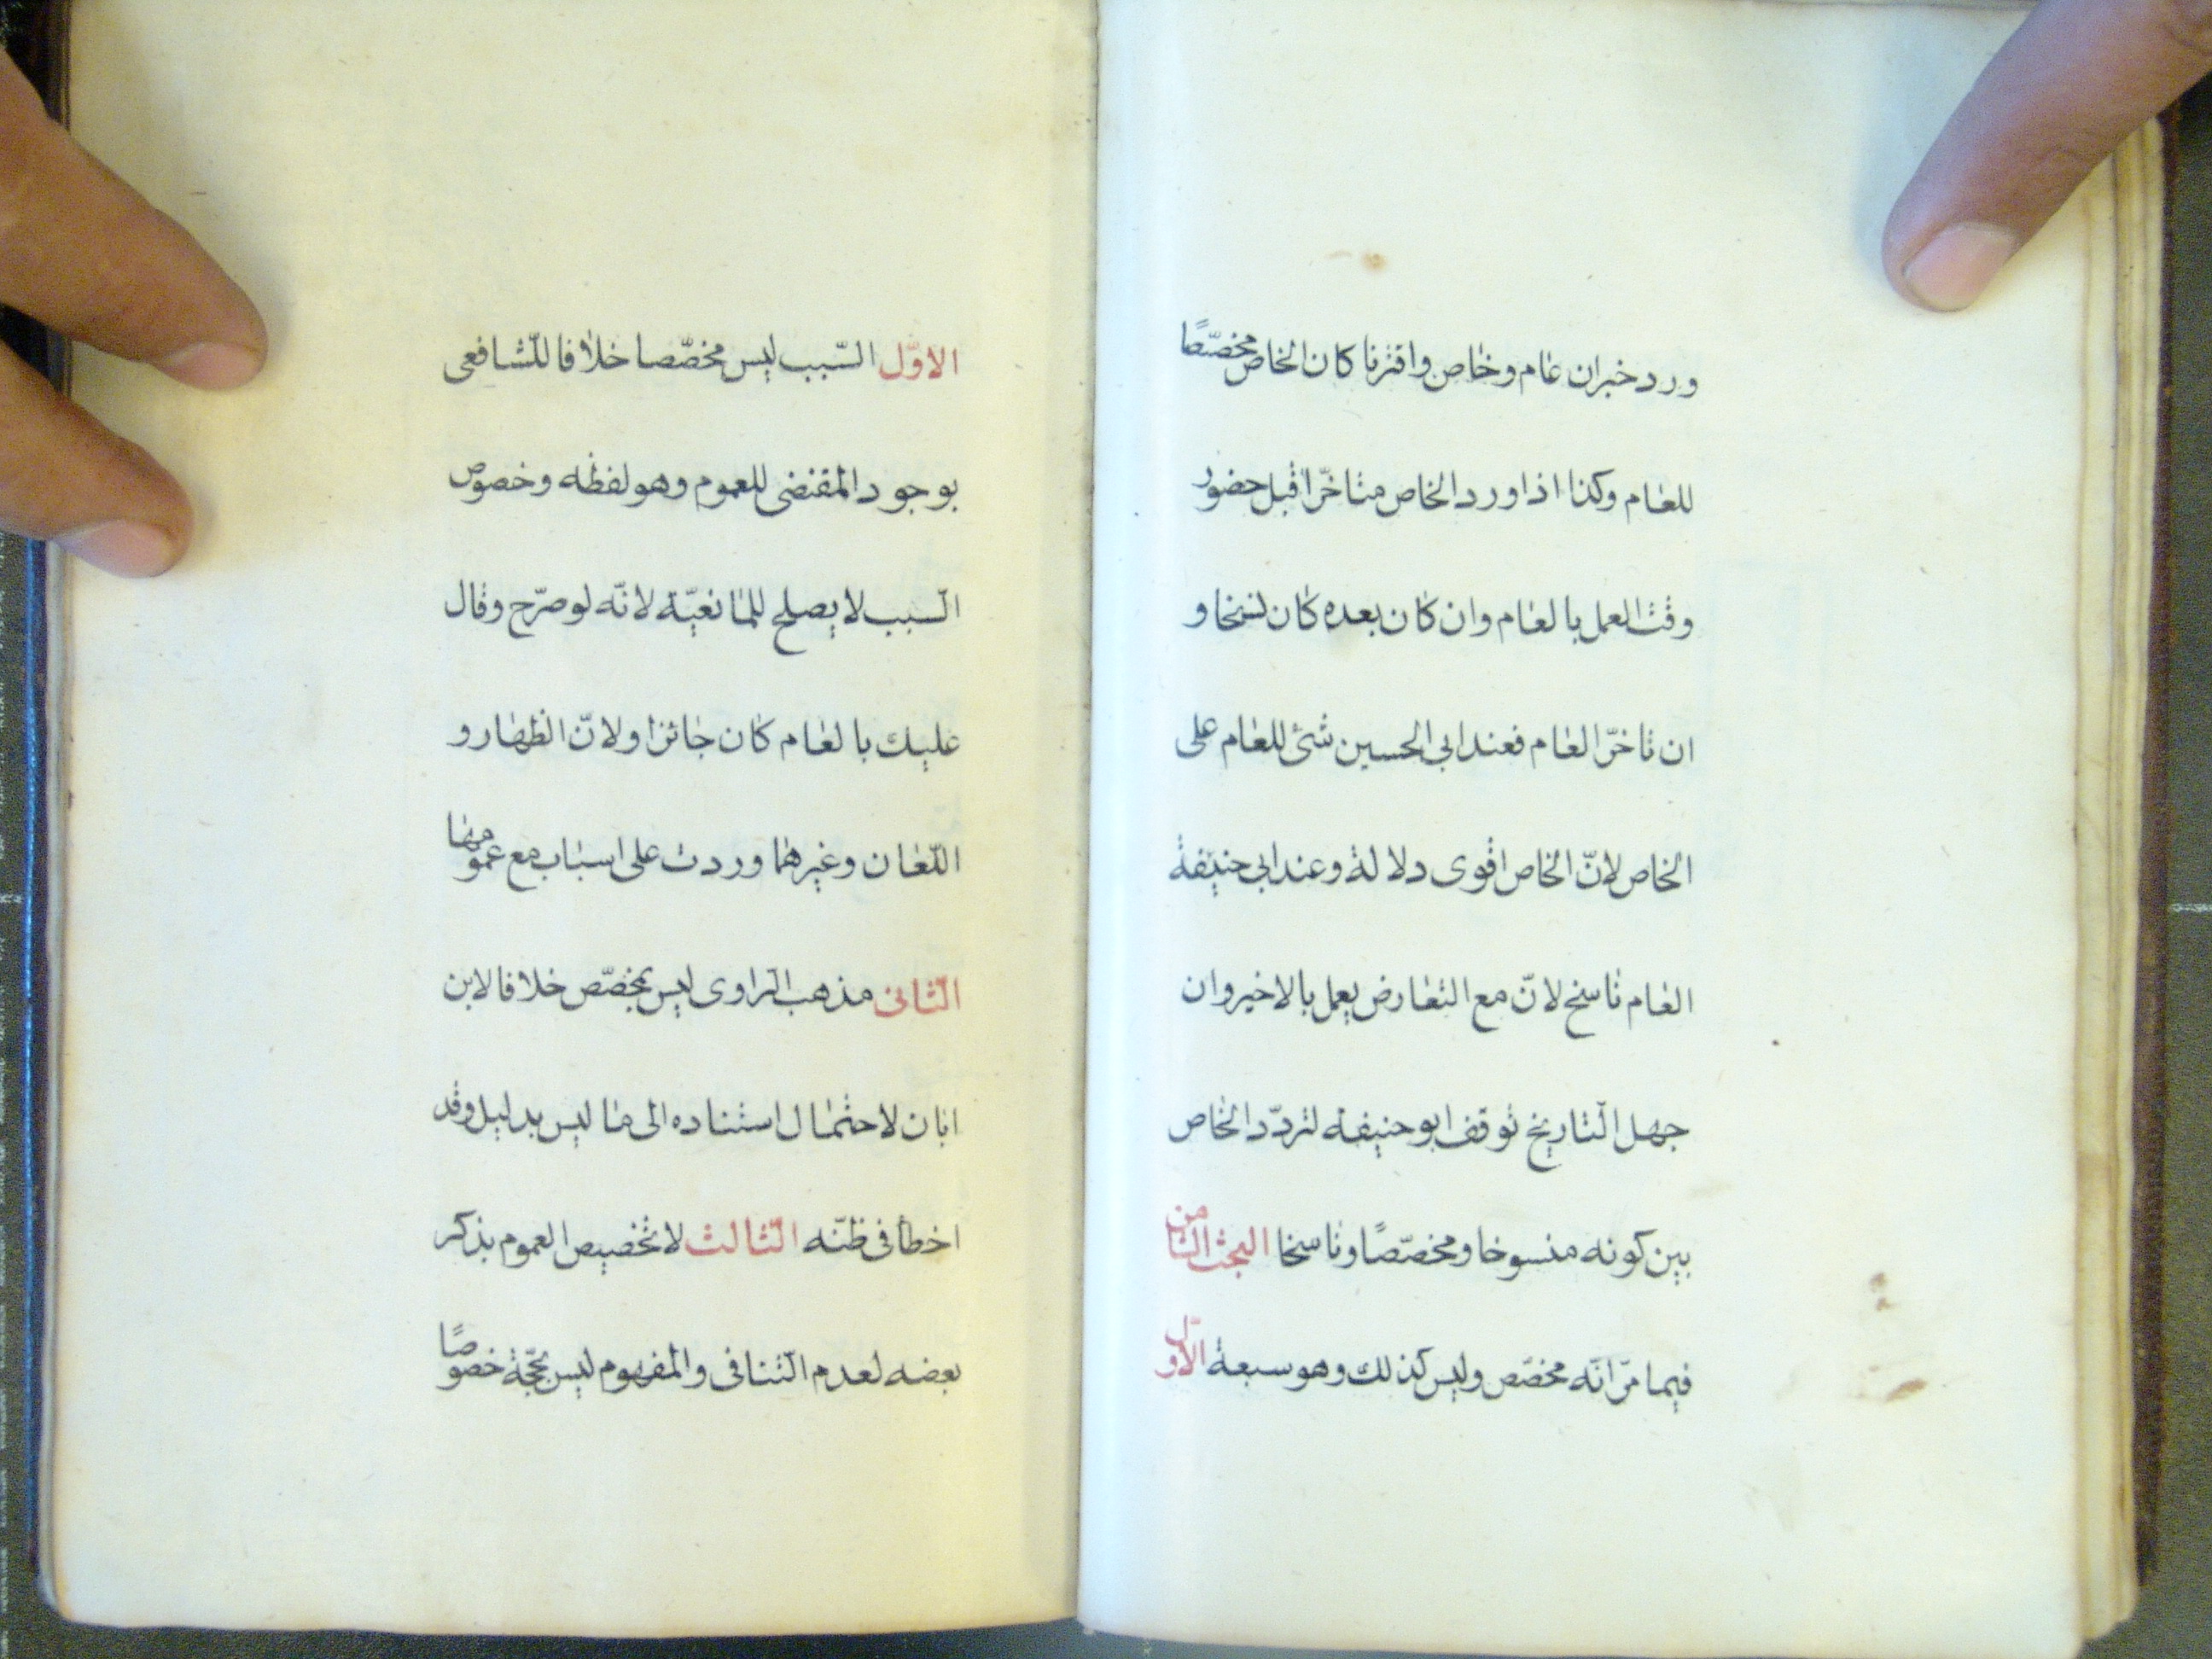 ورد خبران عام وخاص واقترنا كان الخاص مخصّصًا
للعام وكذا اذا ورد الخاص متاخّرًا قبل حضور
وقت العمل بالعام وان كان بعده كان نسخا و
ان تاخّر العام فعند ابي الحسين شئ للعام على
الخاص لانّ الخاص اقوى دلالة وعند ابي حنيفة
العام ناسخ لانّ مع التعارض يعمل بالاخير وان
جهل التّاريخ توقف ابو حنيفة لتردّد الخاص
بين كونه منسوخا ومخصّصًا وناسخا البحث الثامن
فيما مرّ انّه مخصّص وليس كذلك وهو سبعة الاوّل
الاوّل السّبب ليس مخصّصا خلافا للشّافعى
بوجود المقتضى للعموم وهو لفظه وخصوص
السّبب لا يصلح للمانعيّة لانّه لو صرّح وقال
عليك بالعام كان جائزا ولانّ الظهار و
اللّعان وغيرهما وردت على اسباب مع عمومها
الثّانى مذهب الرّاوى ليس بمخصّص خلافا لابن
ابان لاحتمال استناده الى ما ليس بدليل وقد
اخطأ فى ظنّه الثّالث لا تخصيص العموم بذكر
بعضه لعدم التّنافى والمفهوم ليس بحجّة خصوصًا